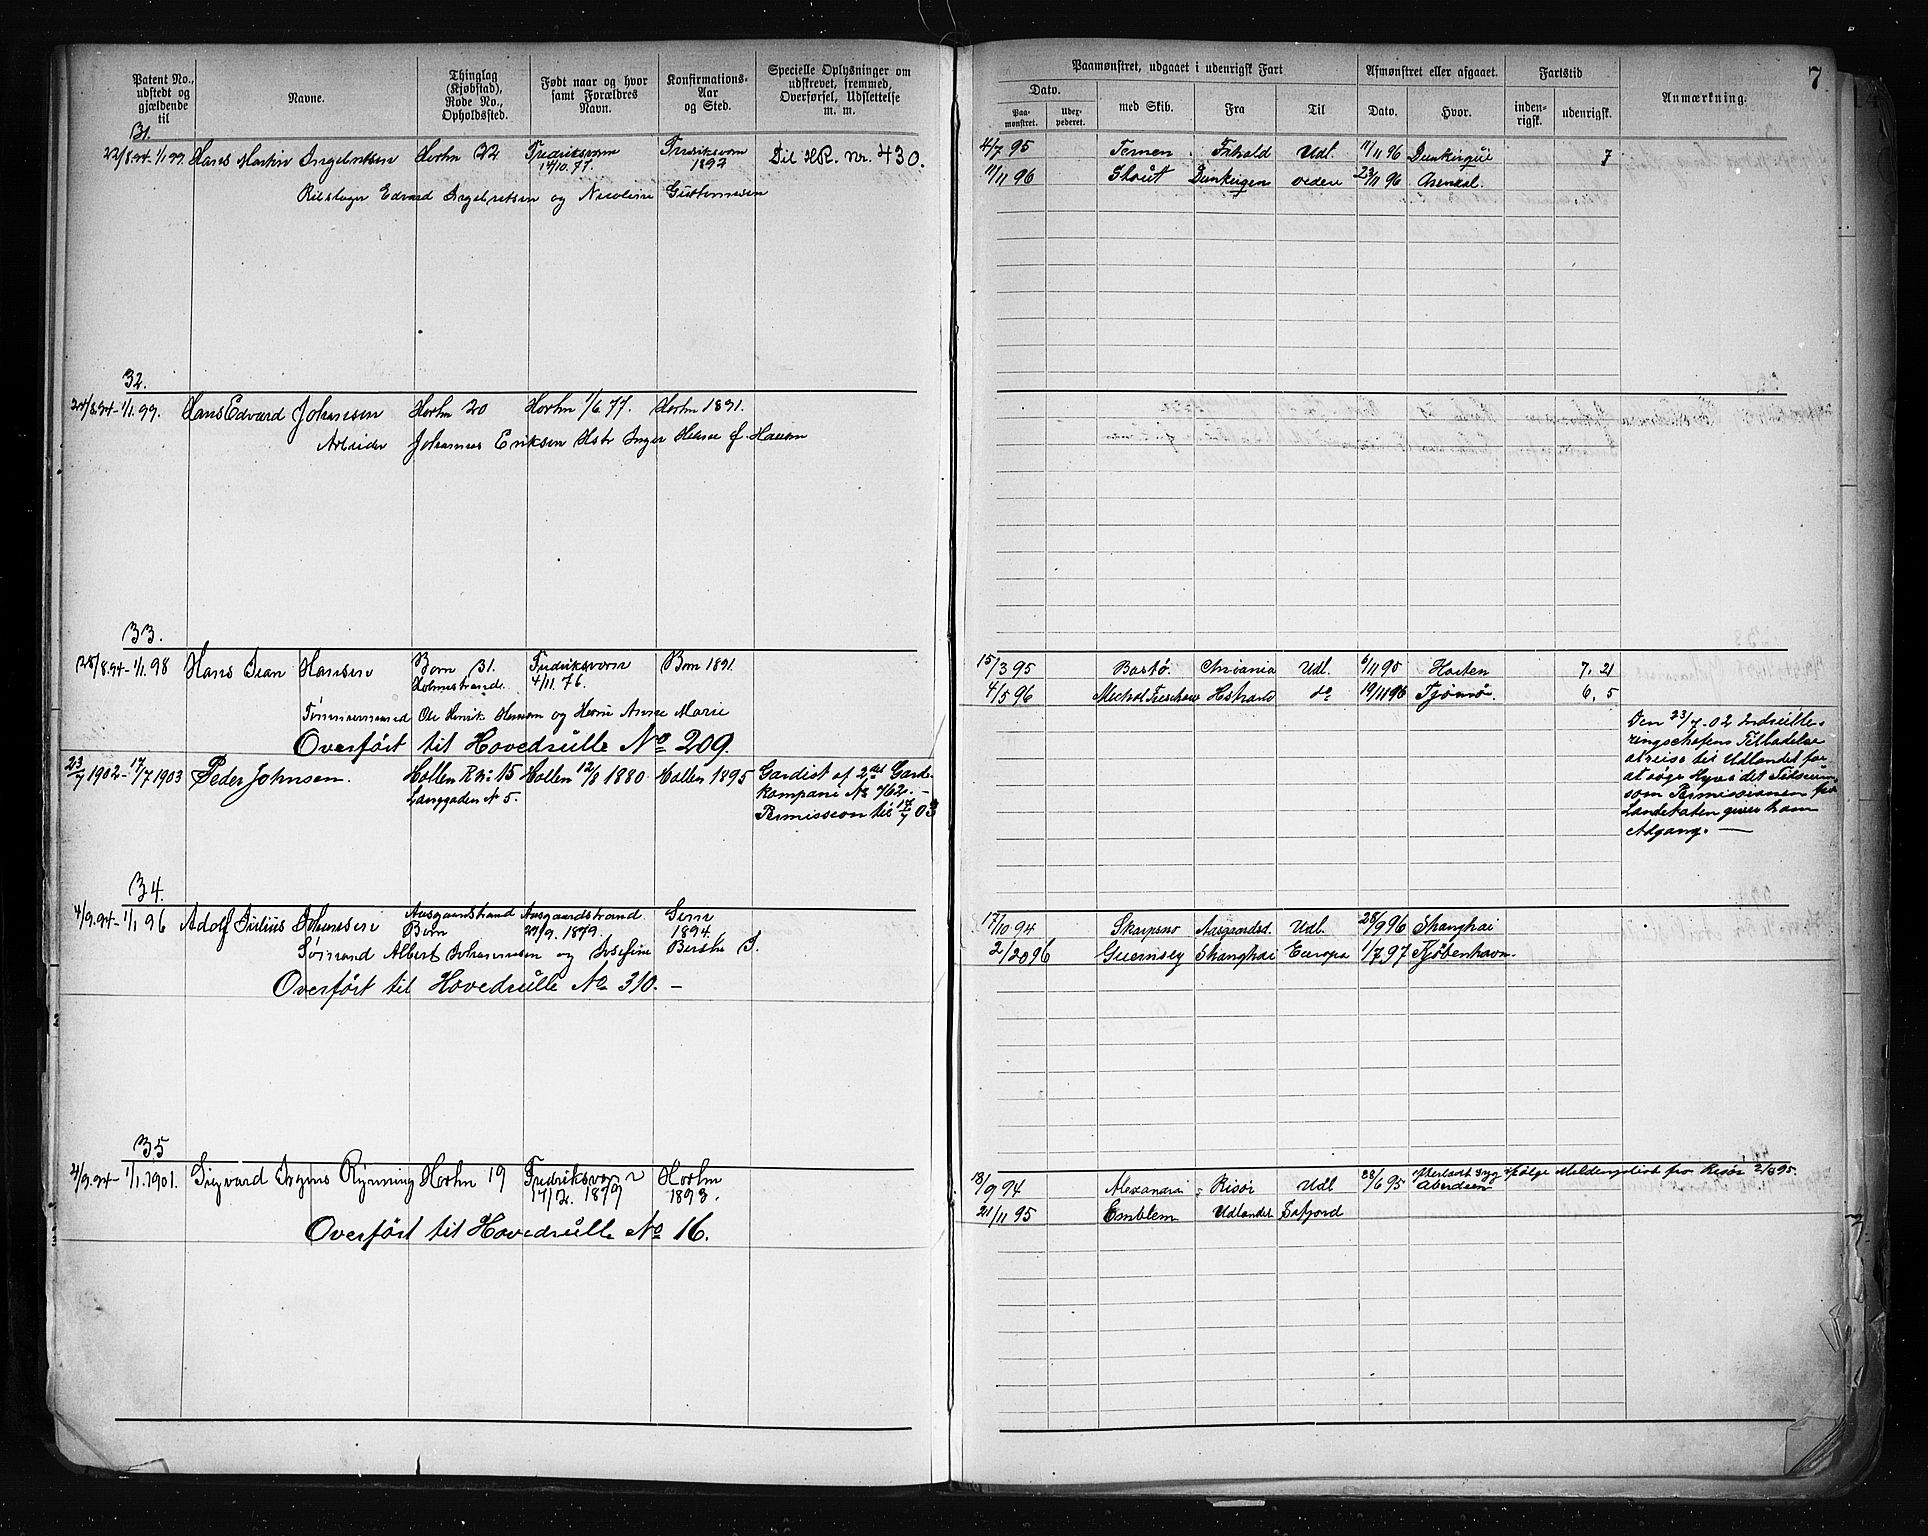 7.
Patent No., udstedt og gjældende til
Navne.
Thinglag (Kjøbstad), Rode No., Opholdssted.
Født naar og hvor samt Forældres Navn.
Konfirmations-Aar og Sted.
Specielle Oplysninger om udskrevet, fremmed, Overførsel, Udslettelse m. m.
Paamønstret, udgaaet i udenrigsk Fart
Dato.
Paa-mønstret.
med Skib.
Fra
Til
Afmønstret eller afgaaet.
Dato.
Hvor.
Fartstid
inden-rigsk.
udenrigsk.
Anmærkning.
31.
22/8.94-1/1.99. Hans Martin Ingebretsen Horhn 22 Fredriksværn 14/10.77. Fredriksværn 1892 Til HR. Nr. 430.
Edvard Ingebretsen og Nicoline
4/7 95 Ternen Udl. 11/11 96 Dunkerque 7
11/11 96 Dunkerque 23/11 96 Arendal.
32.
24/8.94-1/1.99. Hans Edvard Johansen Horhn 20 Horhn 1/6 77. Horhn 1891.
Arbeider Johannes Eriksen Hstr Inger Helene f. Hansen
33.
28/8.94-1/1.98 Hans Hansen 31. Holmestrand. Fredriksværn 4/11.76. 1891.
Tømmermand Ole Henrik Hansen og Anne Marie
Overført til Hovedrulle No 209.
15/3 95 Bastø. Udl. 6/11 95 Horten 7, 21
4/5 96 Hstrand do 19/11 96 Tjømø. 6, 5
23/7 1902-17/7 1903 Peder Johnsen. Hollen R No 15 Langgaden No 5. Hollen 12/8 1880 Hollen 1895 Gardist af 2det Garde-kompani No 762.- Permission til 17/7 03
Den 23/7.02
Tilladelse
at reise til Udlandet for
at søge Hyre i det Tidsrum
som Permissionen fra
Landetaten giver ham
Adgang. —
34.
4/9.94-1/1 96 Adolf Julius Johansen Aasgaardstrand Aasgaardstrand. /9. 1879. Sem 1894.
Sømand Albert Johannesen og Josefine
Overført til Hovedrulle No 310. -
17/10 94 Skarpsno Aasgaardsd. Udl. 28/9 96 Shanghai
2/10 96 Guernsey Shanghai Europa 1/7 97 Kjøbenhavn.
35
4/9.94-1/1.1901. Sigvard Rynning Horhn 19 Fredriksværn 17/2. 1879 Horhn 1893.
Overført til Hovedrulle No 16.
18/9 94 Alexandra Risør Udl 28/6 95 Aberdeen ifølge Meldingsliste fra Risør 2/8 95.
21/11 95 Emblem Udlandet